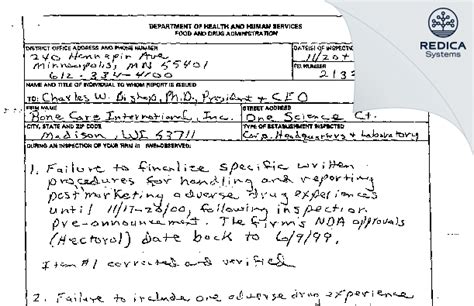 REDICA
Systems
DEPARTMENT OF HEALTH AND HUMAN SERVICES
FOOD AND DRUG ADMINISTRATION
DISTRICT OFFICE ADDRESS AND PHONE NUMBER
DATE(S) OF INSPECTION
240 Hennepin Ave
11/20+
Minneapolis, MN 55401
FEI NUMBER
612-334-4100
2132
NAME AND TITLE OF INDIVIDUAL TO WHOM REPORT IS ISSUED
TO: Charles W. Bishop, Ph.D., President + CEO
FIRM NAME
STREET ADDRESS
Bone Care International, Inc.
One Science Ct.
CITY, STATE AND ZIP CODE
TYPE OF ESTABLISHMENT INSPECTED
Madison, WI 53711
Corp. Headquarters + Laboratory
DURING AN INSPECTION OF YOUR FIRM (I) (WE) OBSERVED:
1. Failure to finalize specific written
procedures for handling and reporting
postmarketing adverse drug experiences
until 11/17-28/00, following inspection
pre-announcement. The firm's NDA approvals
(Hectorol) date back to 6/9/99.
Item #1 corrected and verified
2. Failure to include one adverse drug experience